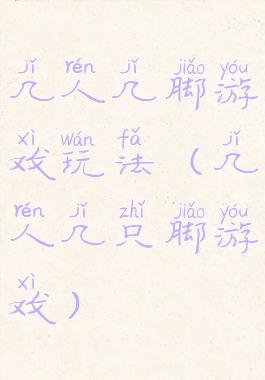 jǐ rén jǐ jiǎo yóu
几人几脚游
xì wán fǎ jǐ
戏玩法（几
rén jǐ zhǐ jiǎo yóu
人几只脚游
xì
戏）